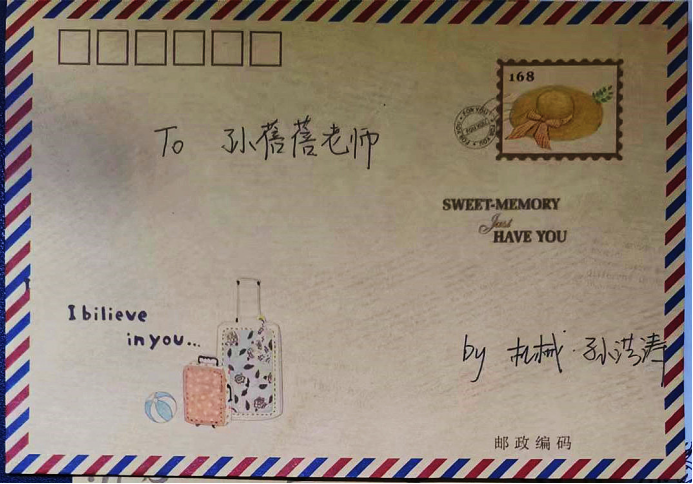 168
FOR YOU
To 孙蓓蓓老师
SWEET-MEMORY
Just
HAVE YOU
I bilieve
in you...
by 机械·孙浩涛
邮政编码